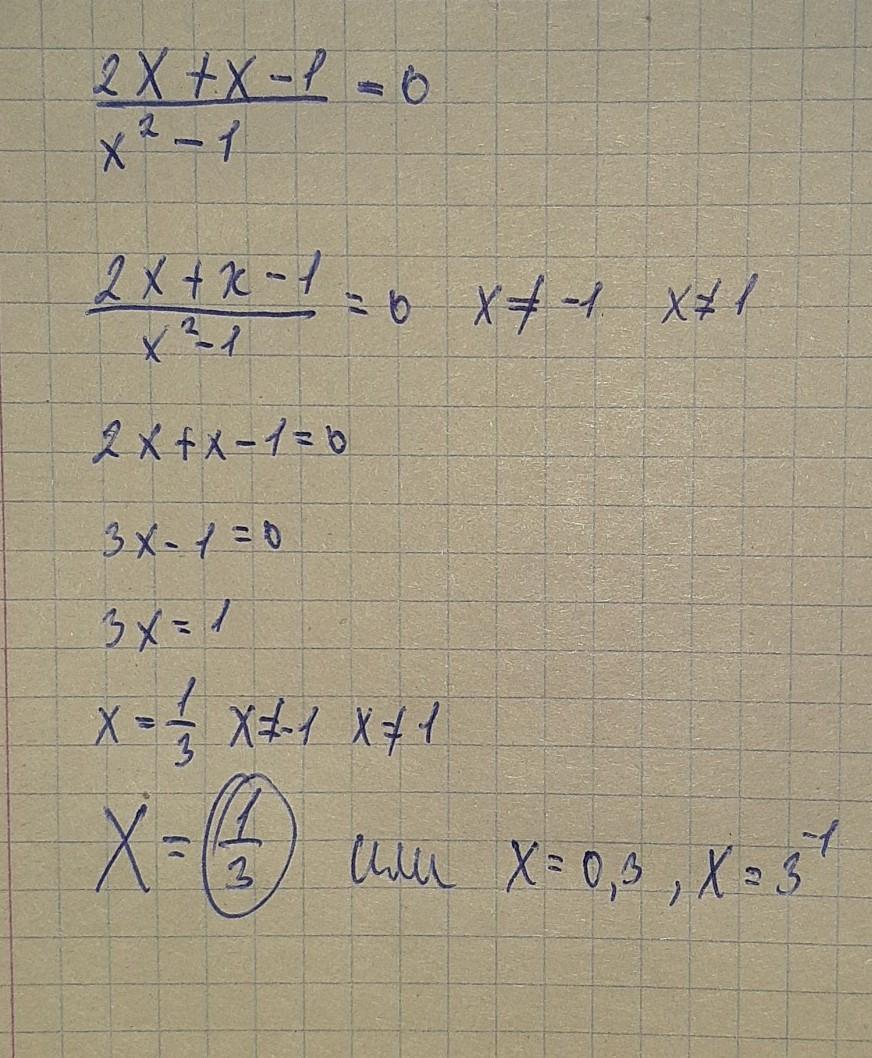 (2x + x - 1)/(x² - 1) = 0
(2x + x - 1)/(x² - 1) = 0 x ≠ -1 x ≠ 1
2x + x - 1 = 0
3x - 1 = 0
3x = 1
x = 1/3 x ≠ -1 x ≠ 1
X = 1/3 или x = 0,3 , x = 3⁻¹